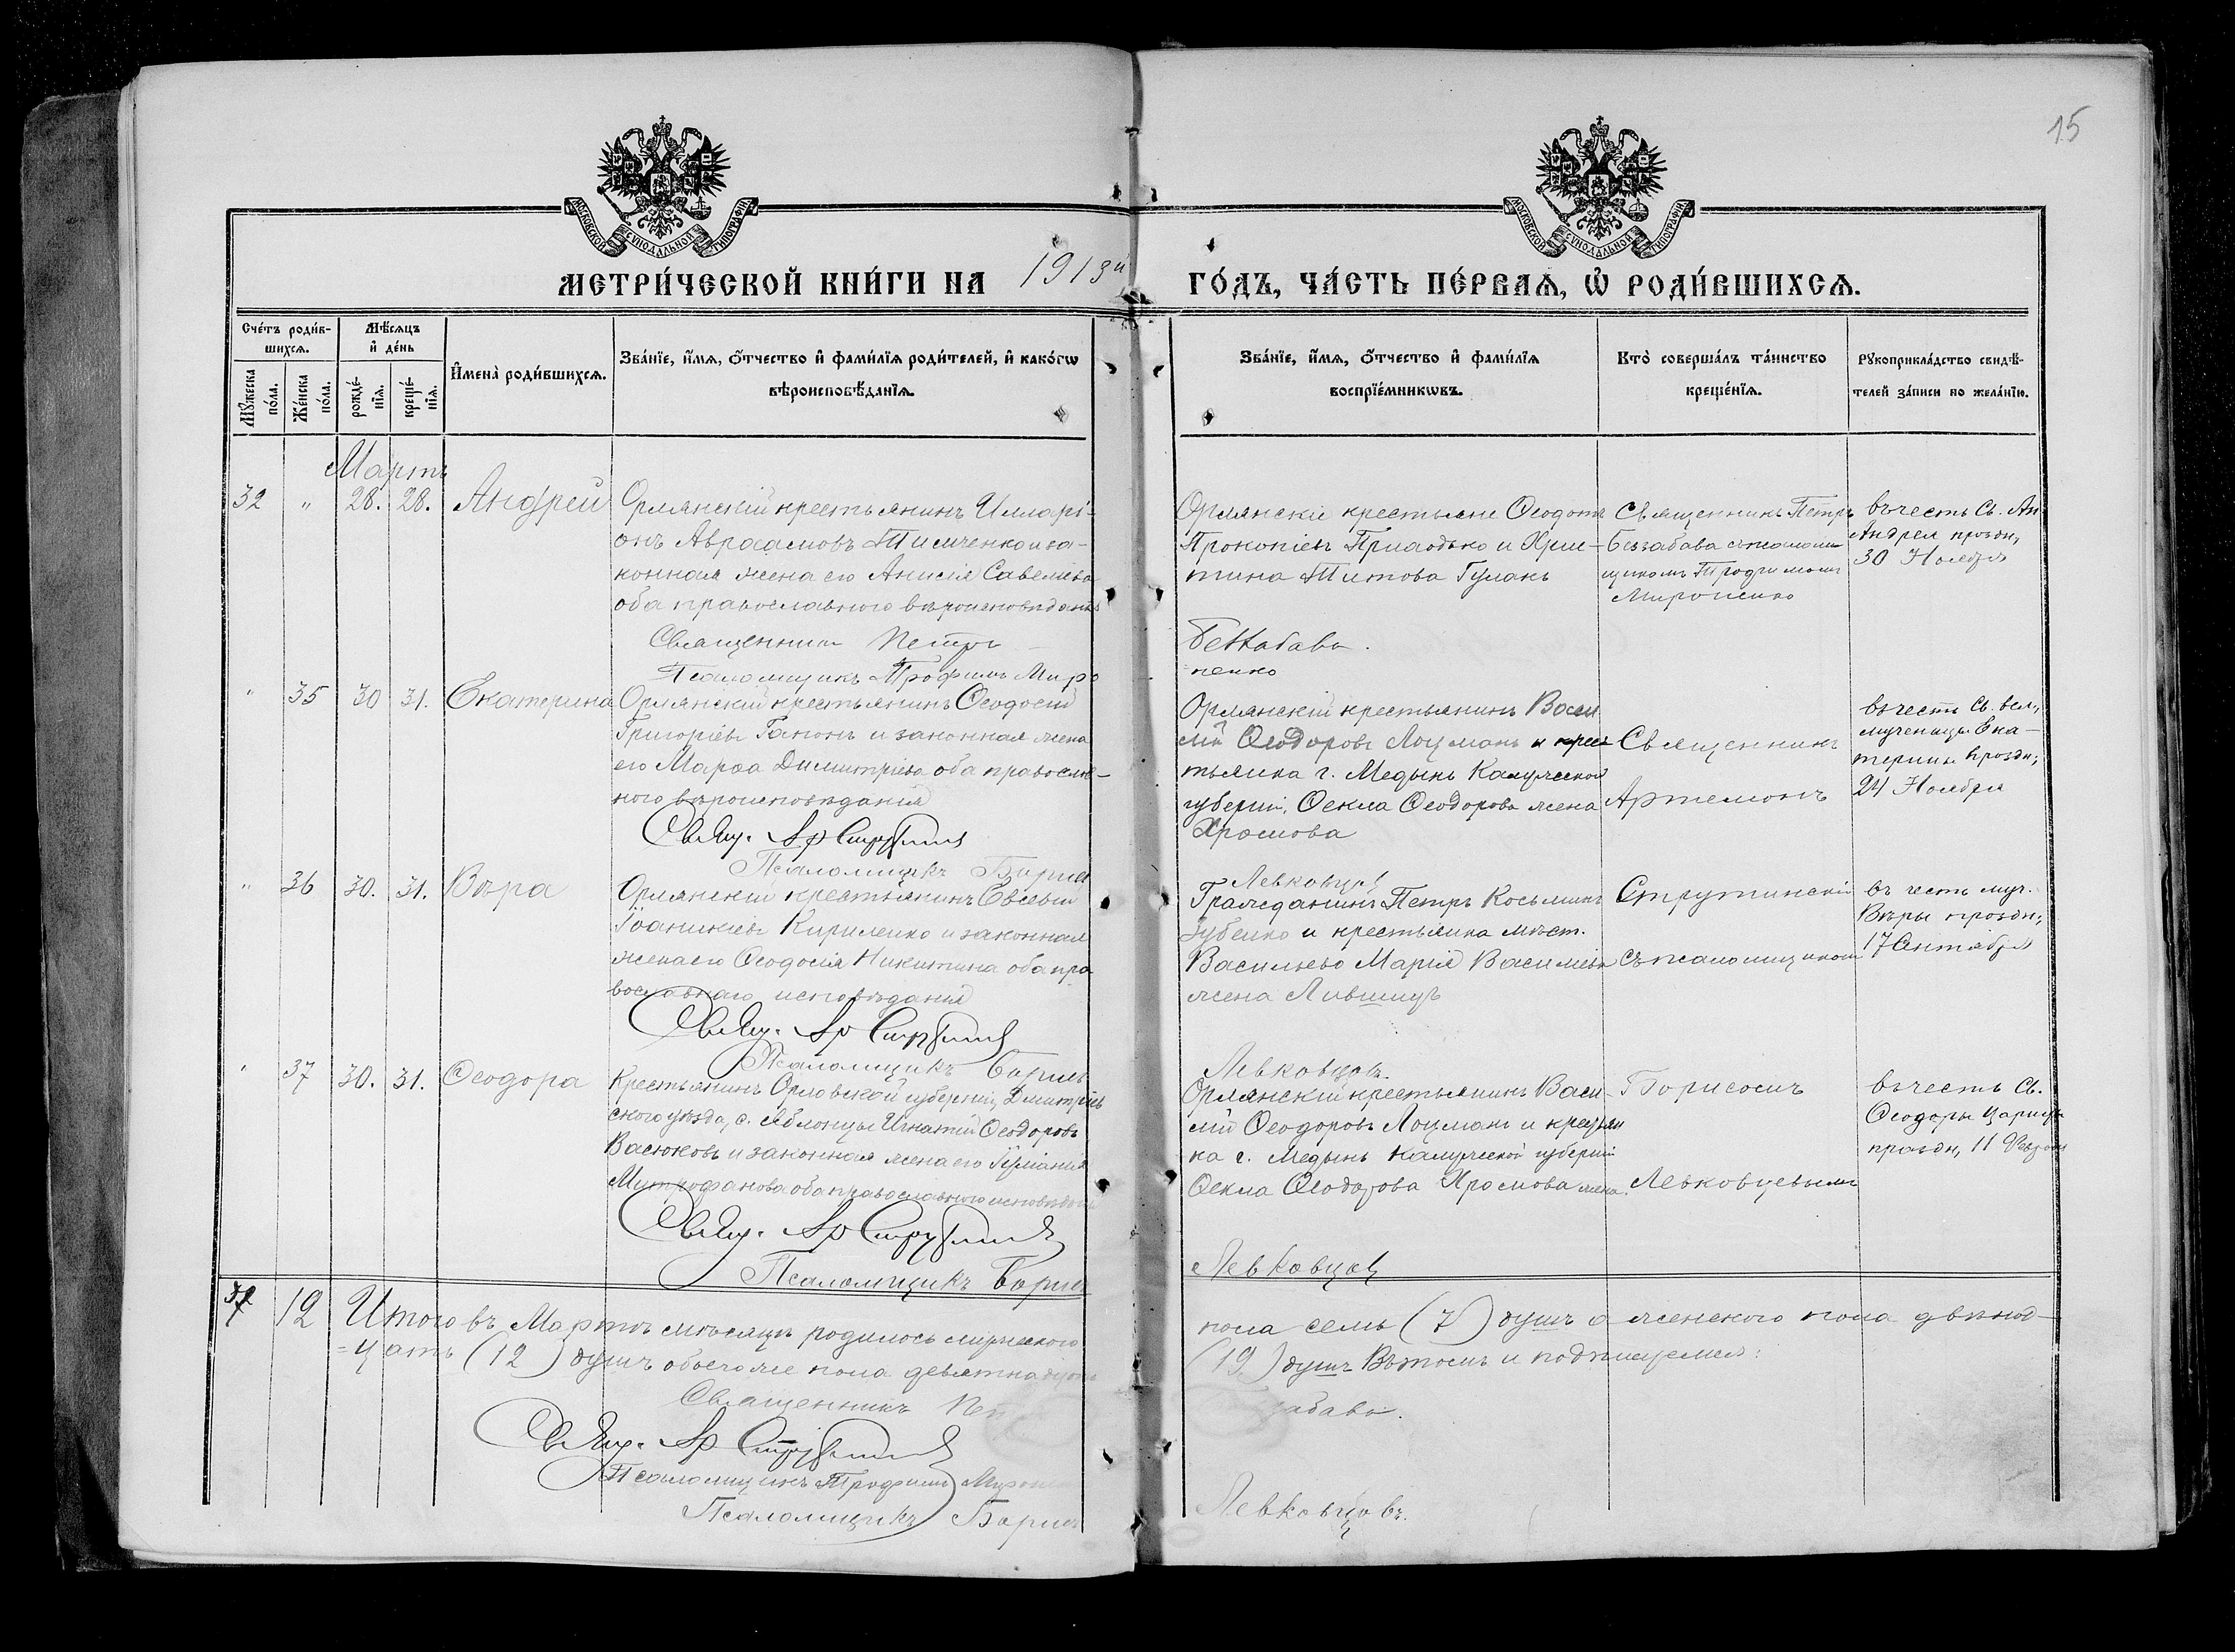 15
МОСКОВСКОЙ СѴНОДАЛЬНОЙ ТИПОГРАФІИ
МОСКОВСКОЙ СѴНОДАЛЬНОЙ ТИПОГРАФІИ
МЕТРИ́ЧЕСКОЙ КНИ́ГИ НА 1913й ГО́ДЪ, ЧА́СТЬ ПЕ́РВАѦ, Ѡ҆ РОДИ́ВШИХСѦ.
Сче́тъ роди́в-
шихсѧ.
Мꙋ́жеска
по́ла.
Же́нска
по́ла.
Мѣ́сѧцъ
и҆ де́нь
рожде́-
нїѧ.
креще́-
нїѧ.
И҆мена̀ роди́вшихсѧ.
Зва́нїе, и҆́мѧ, ѻ҆́тчество и҆ фами́лїѧ роди́телей, и҆ како́гѡ
вѣроисповѣ́данїѧ.
Зва́нїе, и҆́мѧ, ѻ҆́тчество и҆ фами́лїѧ
воспрїе́мникѡвъ.
Кто̀ соверша́лъ та́инство
креще́нїѧ.
Рꙋкоприкла́дство свидѣ́-
телей за́писи по жела́нїю.
Мартъ
32 " 28. 28. Андрей
Орлянскій крестьянинъ Илларі-
онъ Авраамовъ Тимченко и за-
конная жена его Анисія Савелієва
оба православного вѣроисповѣданія
Священникъ Петръ Беззабава.
Псаломщикъ Трофимъ Миро
ненко
Орлянскіе крестьяне Ѳеодотъ
Прокопіевъ Приходько и Хрис-
тина Титова Гулакъ
Священникъ Петръ
Беззабава съ псалом
щикомъ Трофимомъ
Мироненко
въ честь Св. Ап
Андрея празд.,
30 Ноября
" 35 30 31. Екатерина
Орлянскій крестьянинъ Ѳеодосій
Григоріевъ Гапонъ и законная жена
его Марѳа Димитріева оба православ-
ного вѣроисповѣданія
Свящ. Ар Струтинскій
Псаломщикъ Борисъ
Левковцевъ
Орлянскій крестьянинъ Васи
лій Ѳеодоровъ Лоцманъ и крес
тьянка г. Медынь Калужской
губерніи, Ѳекла Ѳеодорова жена
Хромова
Священникъ
Артемонъ
въ честь Св. вел.,
мученицы Ека-
терины празд.,
24 Ноября
" 36 30. 31. Вѣра
Орлянскій крестьянинъ Евсевій
Іоаникіевъ Кириленко и законная
жена его Ѳеодосія Никитина оба пра
вославнаго исповѣданія
Свящ. Ар Струтинскій
Псаломщикъ Борисъ
Левковцевъ.
Гражданинъ Петръ Косьминъ
Губенко и крестьянка мѣст.
Васильево Марія Василіева
жена Лившицъ
Струтинскій
съ псаломщикомъ
въ честь муч.
Вѣры празд.,
17 Сентября
" 37 30. 31. Ѳеодора
Крестьянинъ Орловской губерніи, Дмитріев
ского уѣзда, с. Яблонцы Игнатій Ѳеодоровъ
Васюковъ и законная жена его Іуліанія
Митрофанова оба православного исповѣданія
Свящ. Ар Струтинскій
Псаломщикъ Борисъ
Левковцевъ
Орлянскій крестьянинъ Васи-
лій Ѳеодоровъ Лоцманъ и крестьян
ка г. Медынь Калужской губерніи
Ѳекла Ѳеодорова Хромова жена.
Борисомъ
Левковцевымъ
въ честь Св.
Ѳеодоры Царицы
празд., 11 Февраля
7 12 Итого въ Мартѣ мѣсяцѣ родилось мужескаго пола семь (7) душъ а женского пола двѣнад-
=цать (12) душъ обоего же пола девятнадцать (19) душъ Въ томъ и подписуемся:
Священникъ Пе забава.
Свящ. Ар Струтинскій
Псаломщикъ Трофимъ
Псаломщикъ Борисъ Левковцовъ.